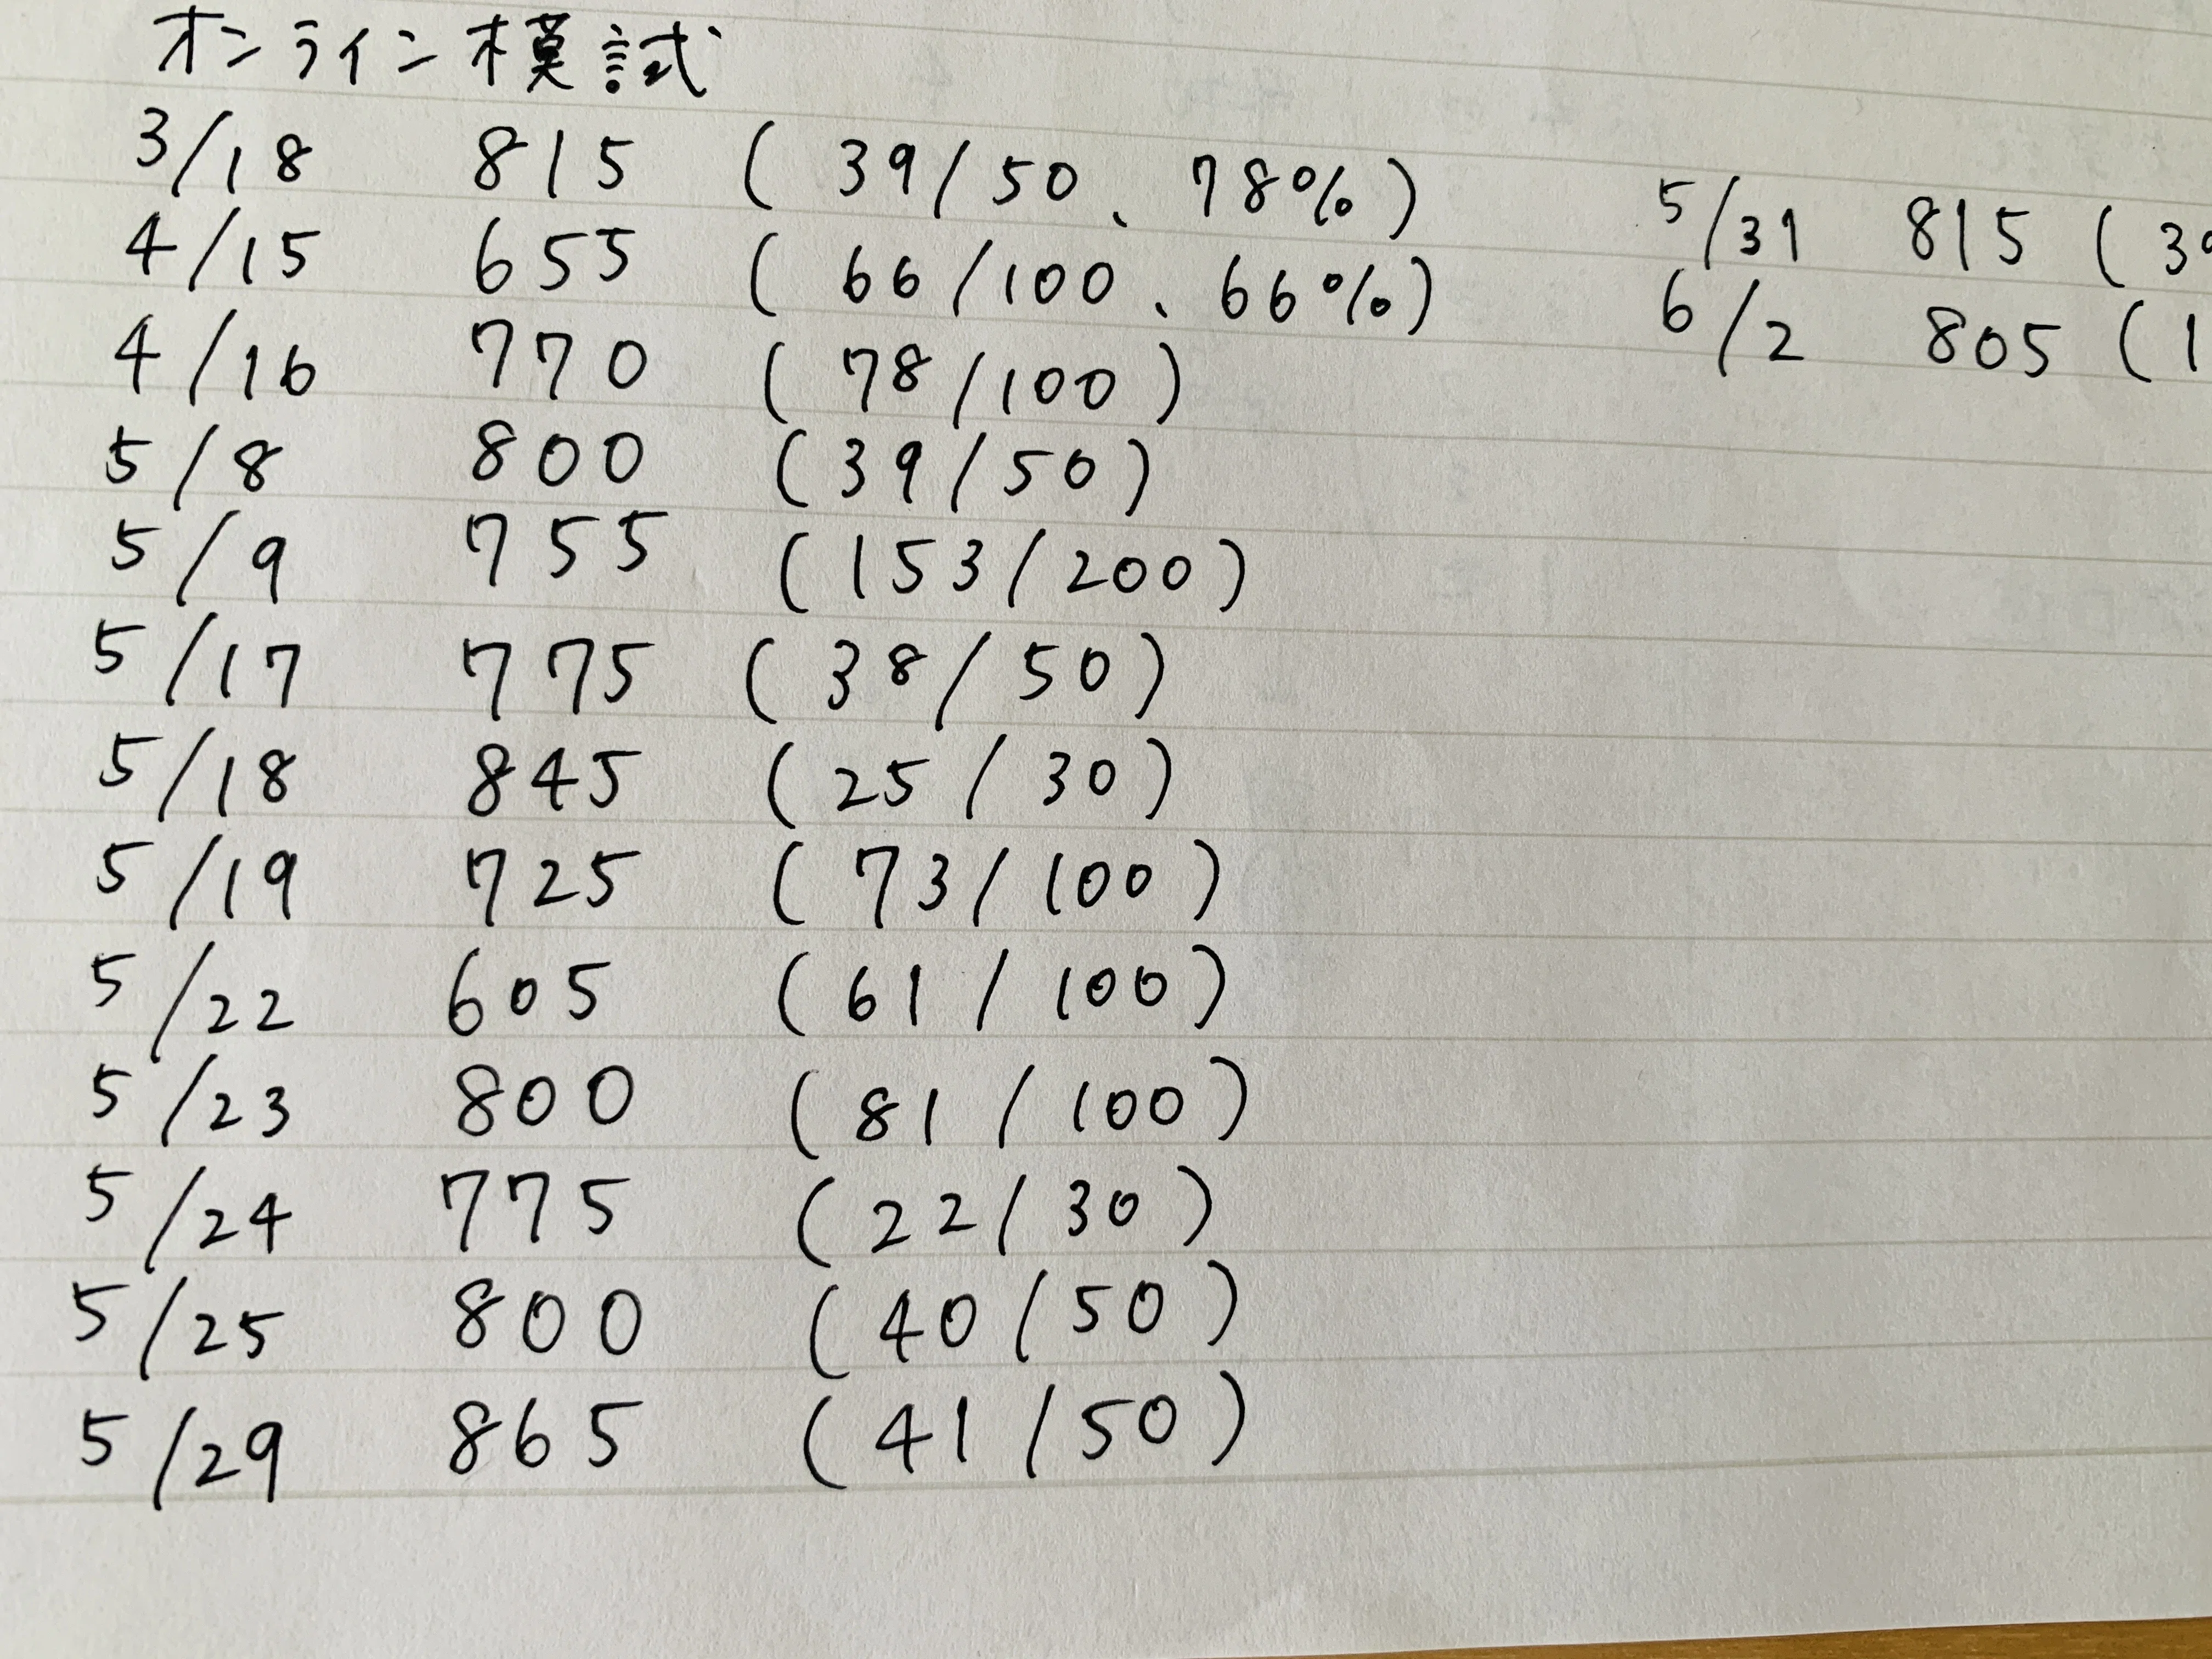 オンライン模試
3/18 815 (39/50、78%)
4/15 655 (66/100、66%)
4/16 770 (78/100)
5/8 800 (39/50)
5/9 755 (153/200)
5/17 775 (38/50)
5/18 845 (25/30)
5/19 725 (73/100)
5/22 605 (61/100)
5/23 800 (81/100)
5/24 775 (22/30)
5/25 800 (40/50)
5/29 865 (41/50)
5/31 815 (3
6/2 805 (1